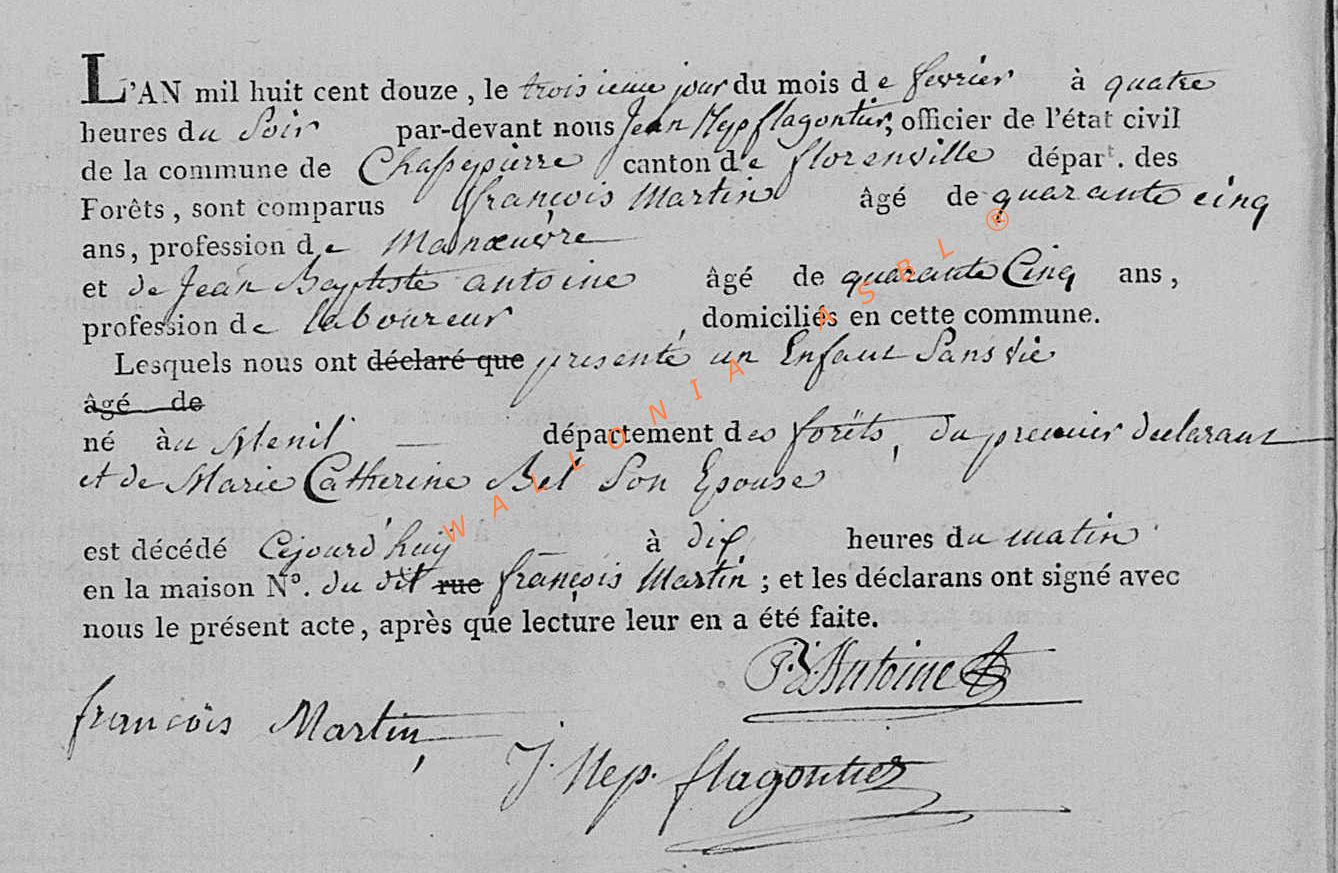 L'AN mil huit cent douze, le troisieme jour du mois de fevrier à quatre
heures du Soir par-devant nous Jean Nep flagontier, officier de l'état civil
de la commune de Chassepierre canton de florenvilleépar^t. des
Forêts, sont comparus françois Martin âgé de quarante cinq
ans, profession de Manœuvre
et de Jean Baptiste antoine âgé de quarante Cinq ans,
profession de laboureur, domiciliés en cette commune.
Lesquels nous ont déclaré que presenté un Enfant Sans vie
âgé de
né àu Menil — département des forêts, du premier declarant
et de Marie Catherine Bel Son Epouse
est décédé Cejourd'huy à dix heures du matin
en la maison N°. du dit rue françois Martin ; et les déclarans ont signé avec
nous le présent acte, après que lecture leur en a été faite.
Antoine
françois Martin,
J. Nep. flagontier
WALLONIA ASBL ®